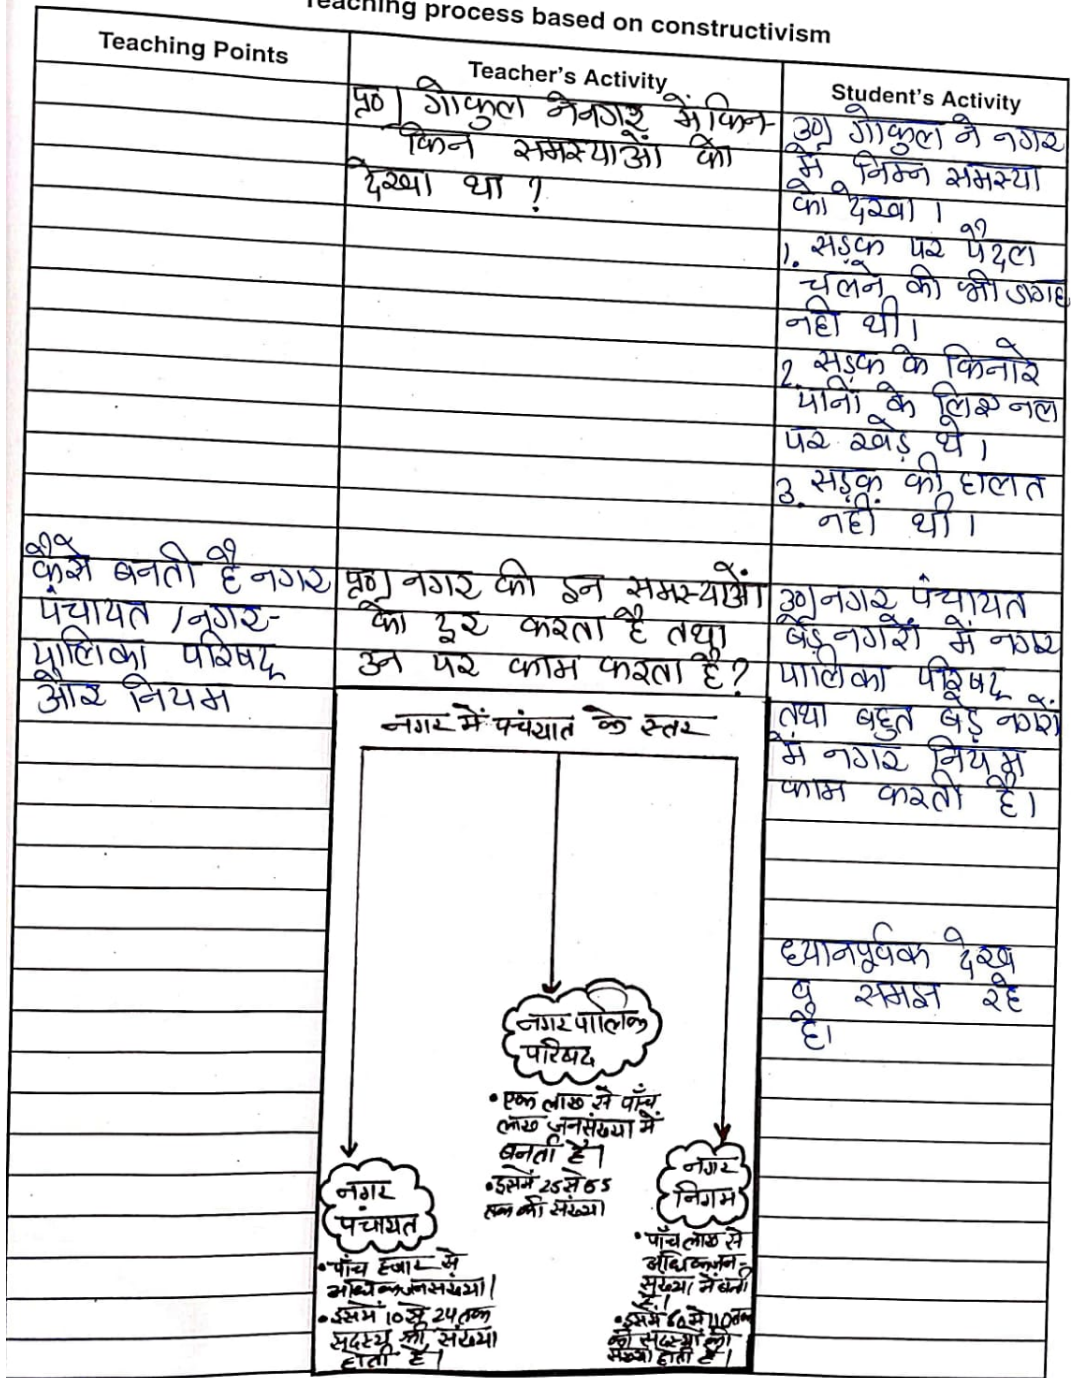 Teaching process based on constructivism
Teaching Points
Teacher's Activity
Student's Activity
प्र०) गोकुल ने नगर में किन-
किन समस्याओं को
देखा था ?
उ०) गोकुल ने नगर
में निम्न समस्या
को देखा ।
1. सड़क पर पैदल
चलने की भी जगह
नही थी।
2. सड़क के किनारे
पानी के लिए नल
पर खड़े थे ।
3. सड़क की हालत
नहीं थी ।
कैसे बनती है नगर
पंचायत / नगर-
पालिका परिषद्
और नियम
प्र०) नगर की इन समस्याओं
को दूर करता है तथा
उन पर काम करता है?
उ०) नगर पंचायत
बड़े नगरों में नगर
पालिका परिषद्
तथा बहुत बड़े नगरों
में नगर नियम
काम करती है।
नगर में पचंयात के स्तर
ध्यानपूर्वक देख
व समझ रहे
है।
नगर पालिक
परिषद
• एक लाख से पाँच
लाख जनसंख्या में
बनती है ।
• इसमें 25 से 55
तक की संख्या
नगर
पंचायत
• पाँच हजार से
अधिक जनसंख्या ।
• इसमें 10 से 24 तक
सदस्य की संख्या
होती है ।
नगर
निगम
• पाँच लाख से
अधिक जन-
संख्या में बनती
है ।
• इसमें 60 से 110 तक
की सदस्यों की
संख्या होती है ।